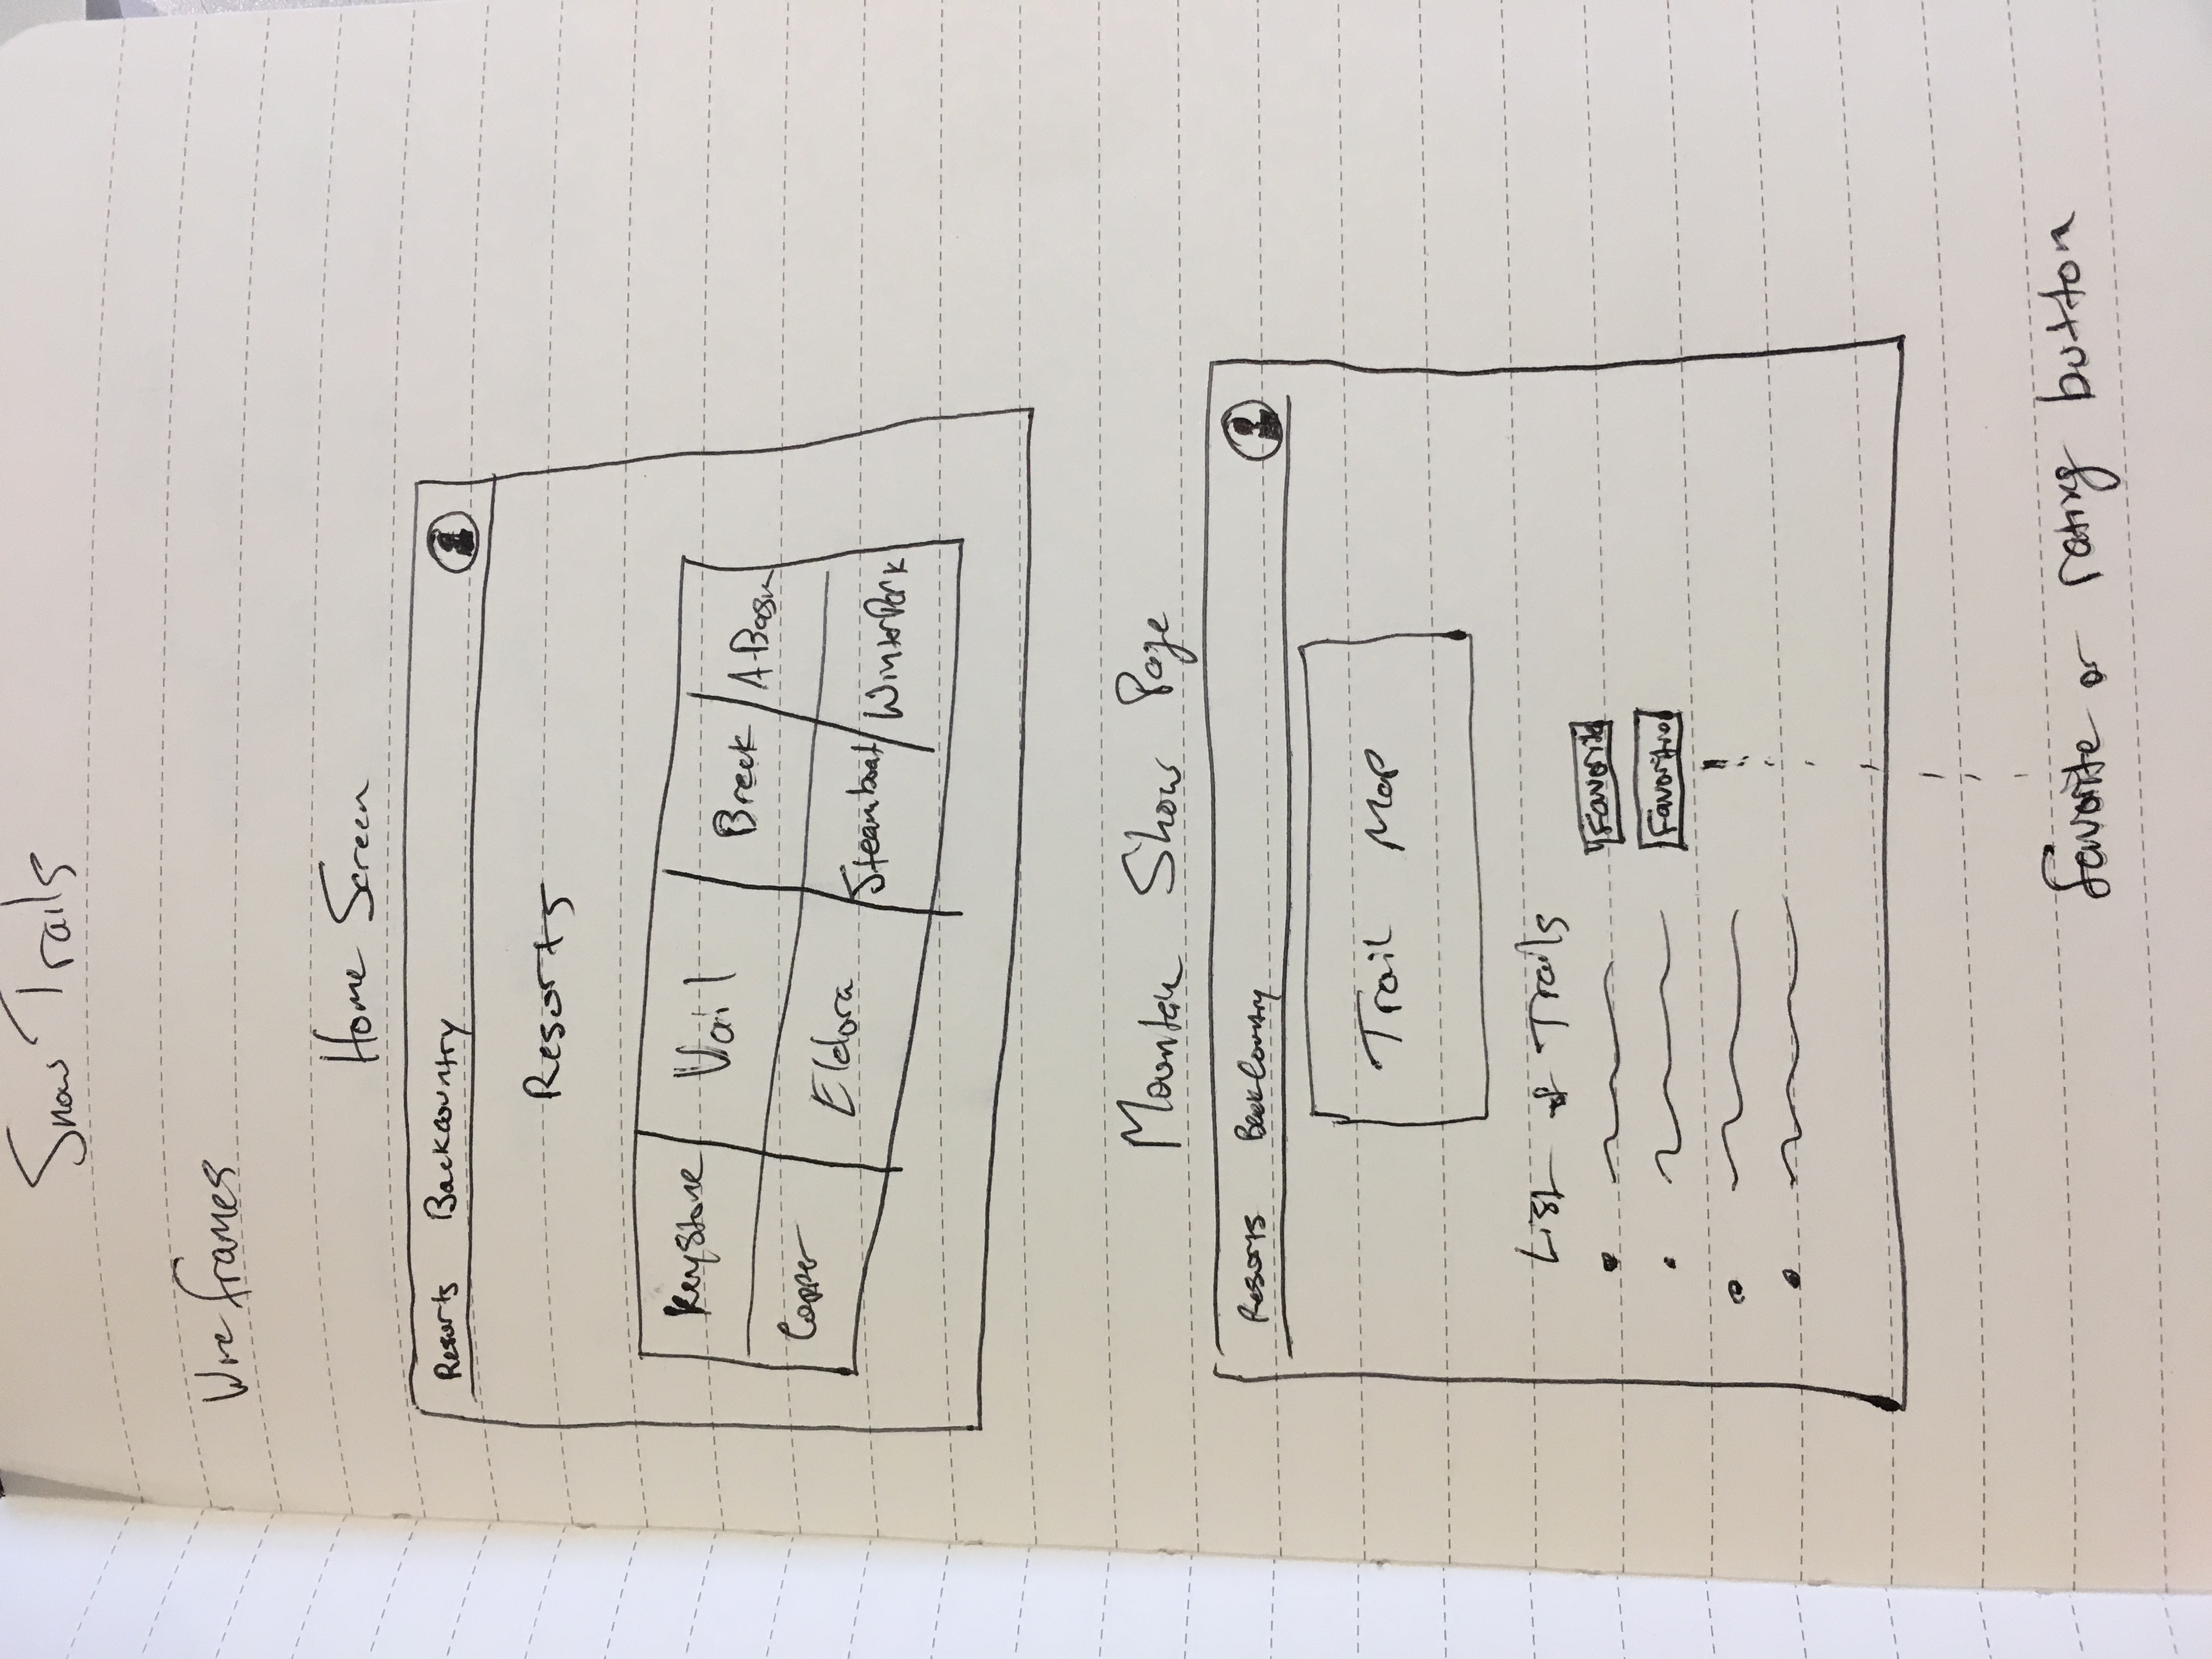 Snow Trails
Wireframes
Home Screen
Resorts Backcountry
Resorts
Keystone Vail Breck A-Basin
Copper Eldora Steamboat WinterPark
Mountain Show Page
Resorts BackCountry
Trail Map
List of Trails
Favorite
Favorite
favorite or rating button